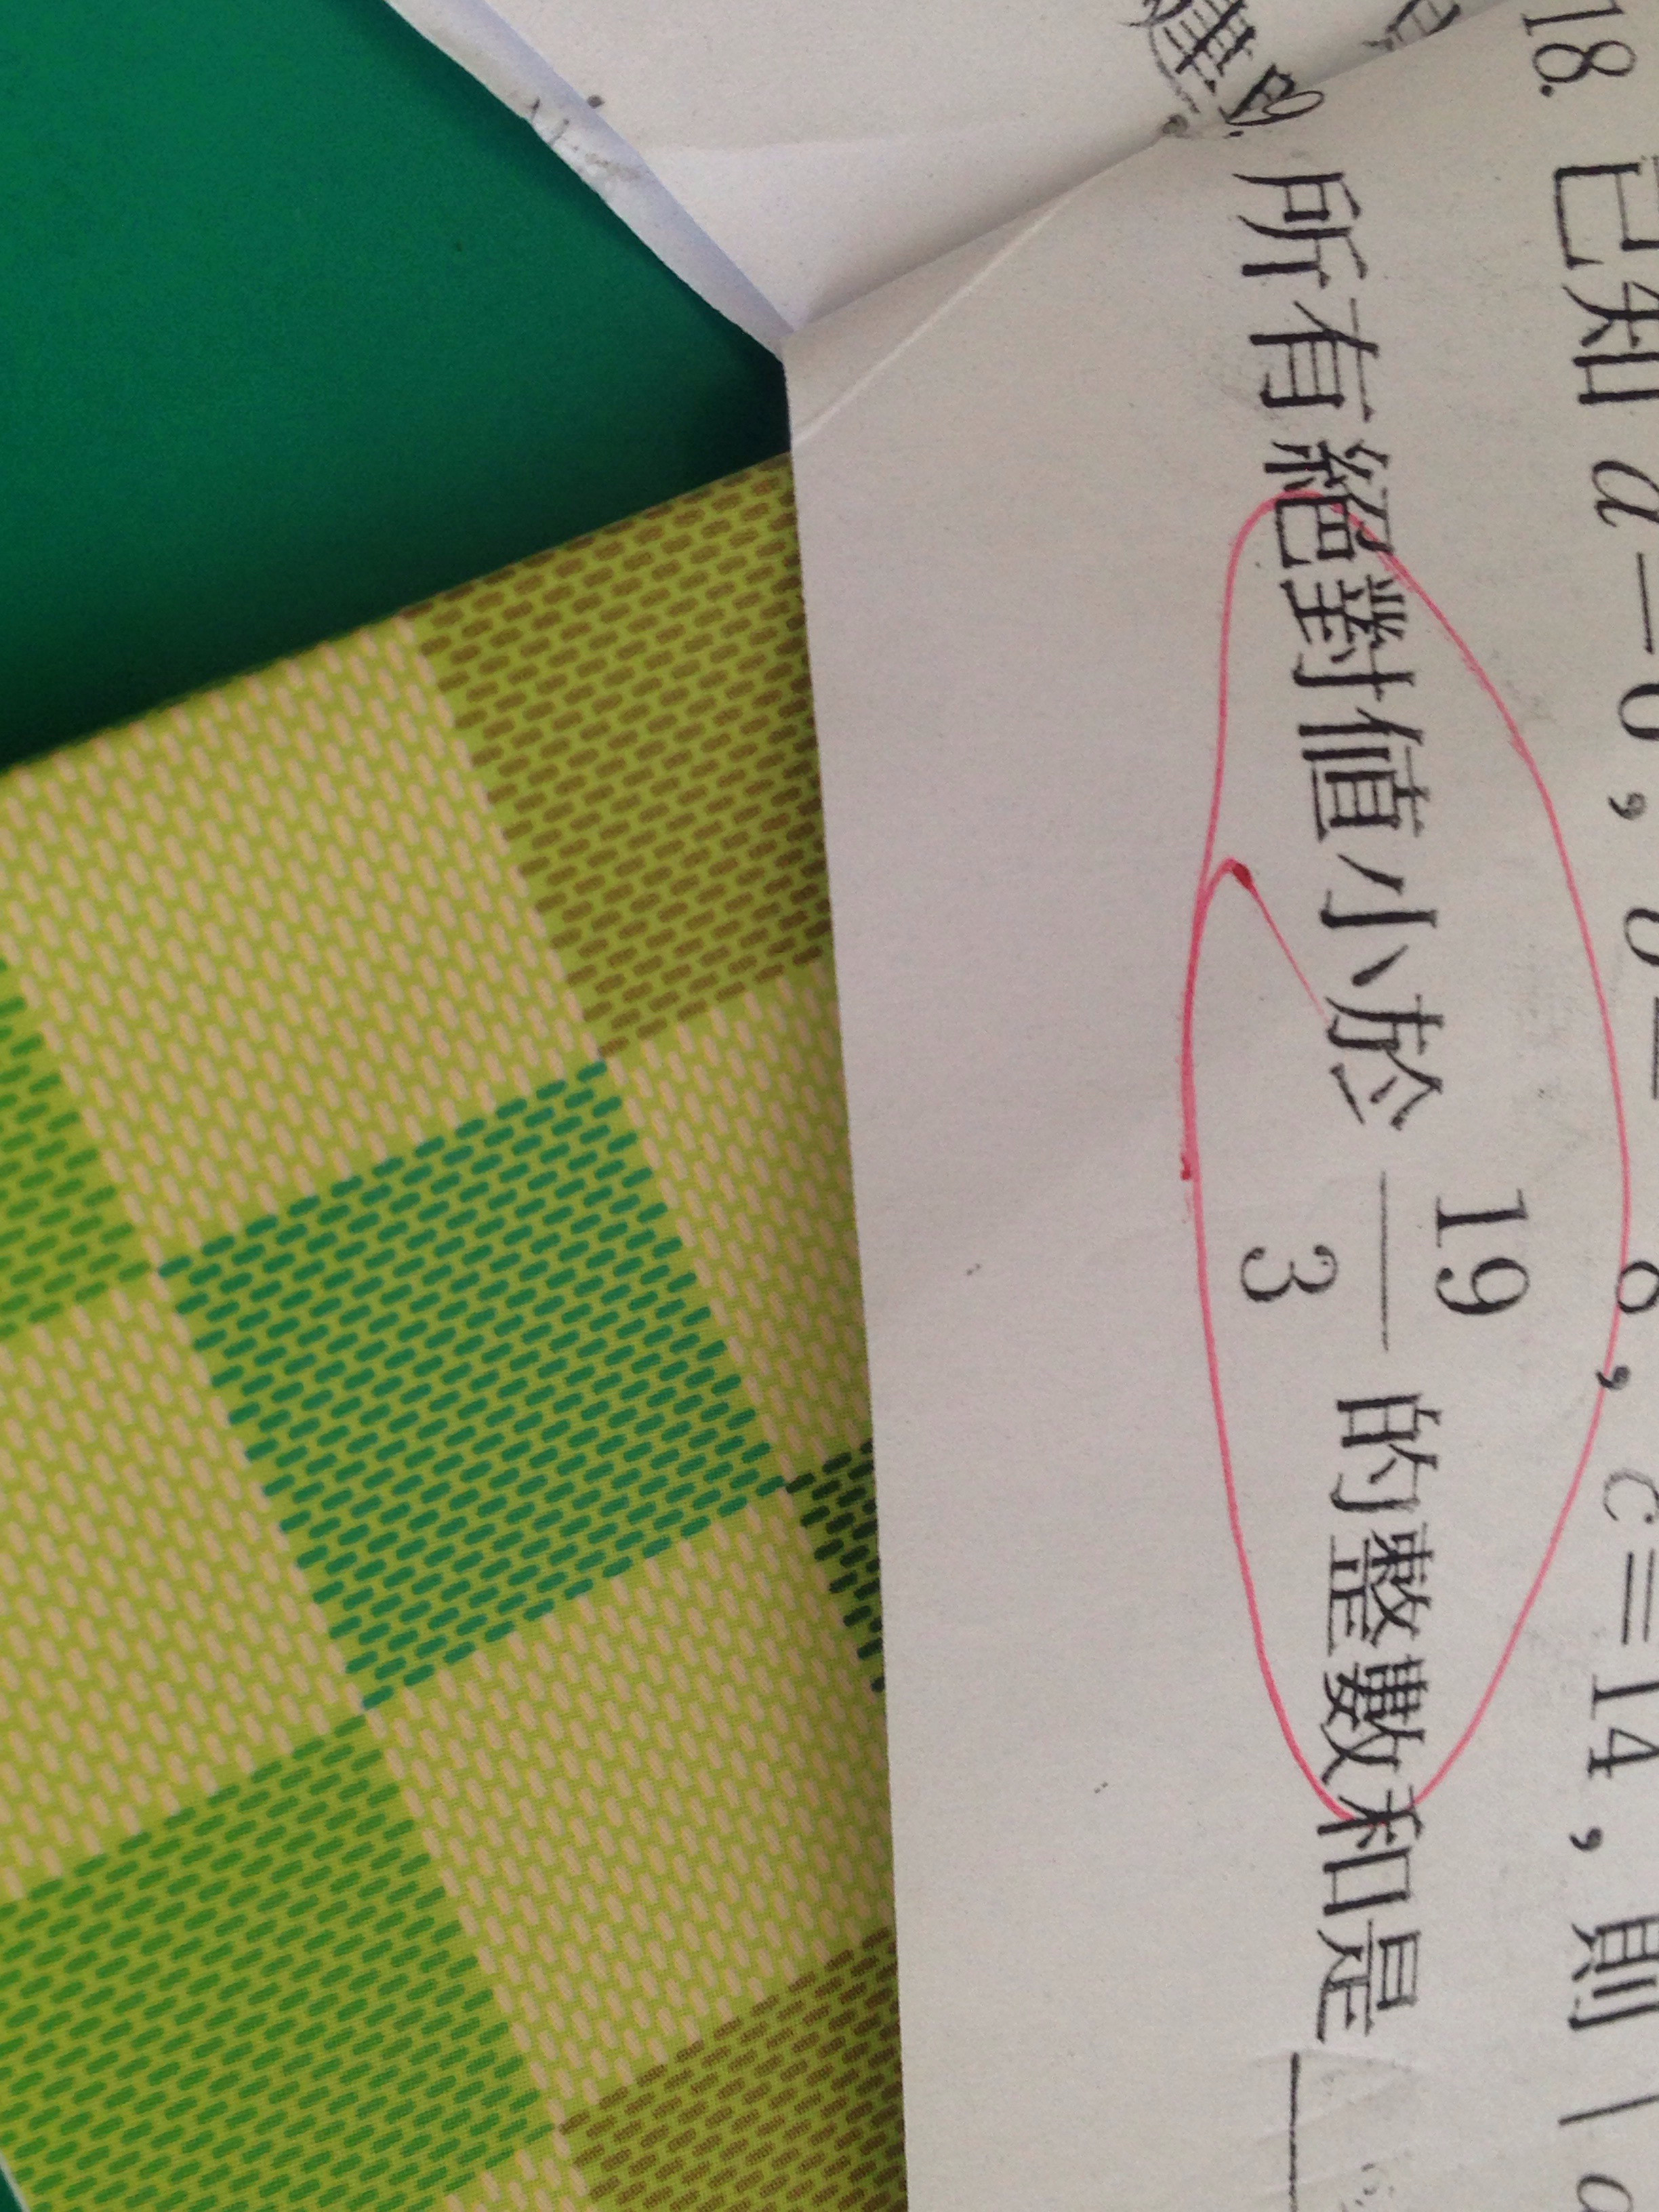 18. 已知 a=6，b=-8，c=14，則 | a
所有絕對值小於 19/3 的整數和是